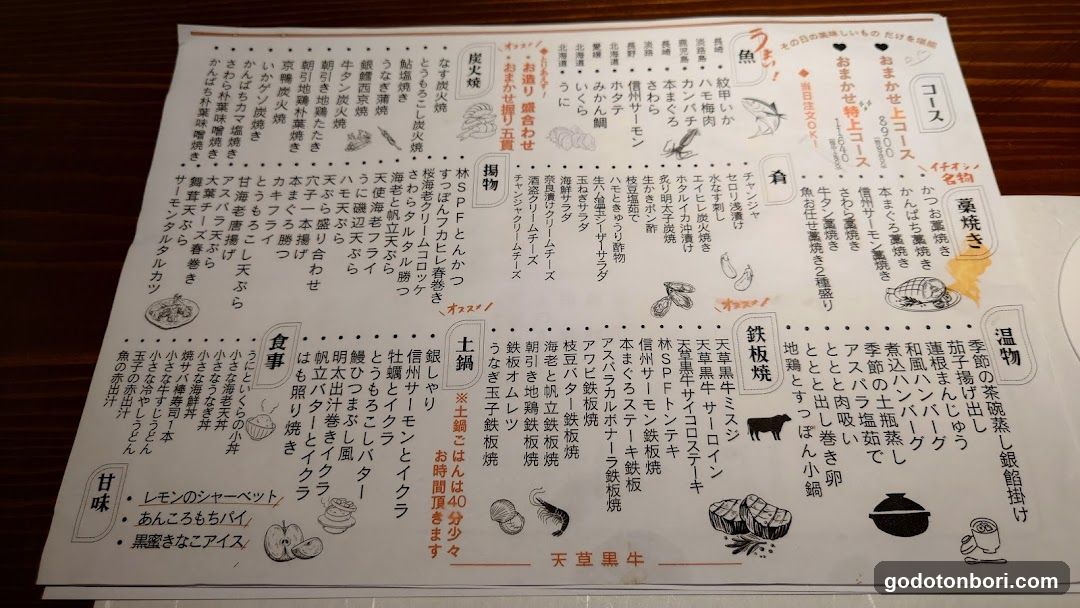 その日の美味しいもの だけを堪能
コース
おまかせ上コース
8900
おまかせ特上コース
◆当日注文OK!
うまい!
魚
長崎 紋甲いか
淡路島 ハモ梅肉
鹿児島 カンパチ
長崎 本まぐろ
淡路 さわら
長野 信州サーモン
北海道 ホタテ
愛媛 みかん鯛
北海道 いくら
北海道 うに
◆とりあえず!
お造り 盛合わせ
おまかせ握り 五貫
オススメ!
炭火焼
なす炭火焼
とうもろこし炭火焼
鮎塩焼き
うなぎ蒲焼
銀鱈西京焼
牛タン炭火焼
朝引き地鶏たたき
朝引地鶏朴葉焼き
京鴨炭火焼
いかゲソ炭焼き
かんぱちカマ塩焼き
さわら朴葉味噌焼き
かんぱち朴葉味噌焼き
イチオシ
名物
藁焼き
かつお藁焼き
かんぱち藁焼き
本まぐろ藁焼き
信州サーモン藁焼き
さわら藁焼き
牛タン藁焼き
魚お任せ藁焼き2種盛り
肴
チャンジャ
セロリ浅漬け
水なす刺し
エイヒレ炭火焼き
ホタルイカ沖漬け
炙り明太子炭焼
生かきポン酢
枝豆塩茹で
ハモときゅうり酢物
生ハム温玉シーザーサラダ
玉ねぎサラダ
海鮮サラダ
奈良漬けクリームチーズ
酒盗クリームチーズ
チャンジャクリームチーズ
揚物
林SPFとんかつ
すっぽんフカヒレ春巻き
桜海老クリームコロッケ
さわらタルタル勝つ
海老と帆立天ぷら
天使海老フライ
うに磯辺天ぷら
ハモ天ぷら
天ぷら盛り合わせ
穴子一本揚げ
本まぐろ勝つ
カキフライ
とうもろこし天ぷら
甘海老唐揚げ
アスパラ天ぷら
大葉チーズ春巻き
舞茸天ぷら
サーモンタルタルカツ
温物
季節の茶碗蒸し銀餡掛け
茄子揚げ出し
蓮根まんじゅう
和風ハンバーグ
煮込ハンバーグ
季節の土瓶蒸し
アスパラ塩茹で
ととと肉吸い
ととと出し巻き卵
地鶏とすっぽん小鍋
オススメ!
鉄板焼
天草黒牛ミスジ
天草黒牛 サーロイン
天草黒牛サイコロステーキ
林SPFトンテキ
信州サーモン鉄板焼
本まぐろステーキ鉄板
アスパラカルボナーラ鉄板焼
アワビ鉄板焼
枝豆バター鉄板焼
海老と帆立鉄板焼
朝引き地鶏鉄板焼
鉄板オムレツ
うなぎ玉子鉄板焼
天草黒牛
オススメ!
土鍋
※土鍋ごはんは40分少々
お時間頂きます
銀しゃり
信州サーモンとイクラ
牡蠣とイクラ
とうもろこしバター
鰻ひつまぶし風
明太出汁巻きイクラ
帆立バターとイクラ
はも照り焼き
食事
うにといくらの小丼
小さな海老天丼
小さなうなぎ丼
小さな海鮮丼
焼サバ棒寿司1本
小さな牛すじうどん
小さな冷やしうどん
玉子の赤出汁
魚の赤出汁
甘味
レモンのシャーベット
あんころもちパイ
黒蜜きなこアイス
godotonbori.com